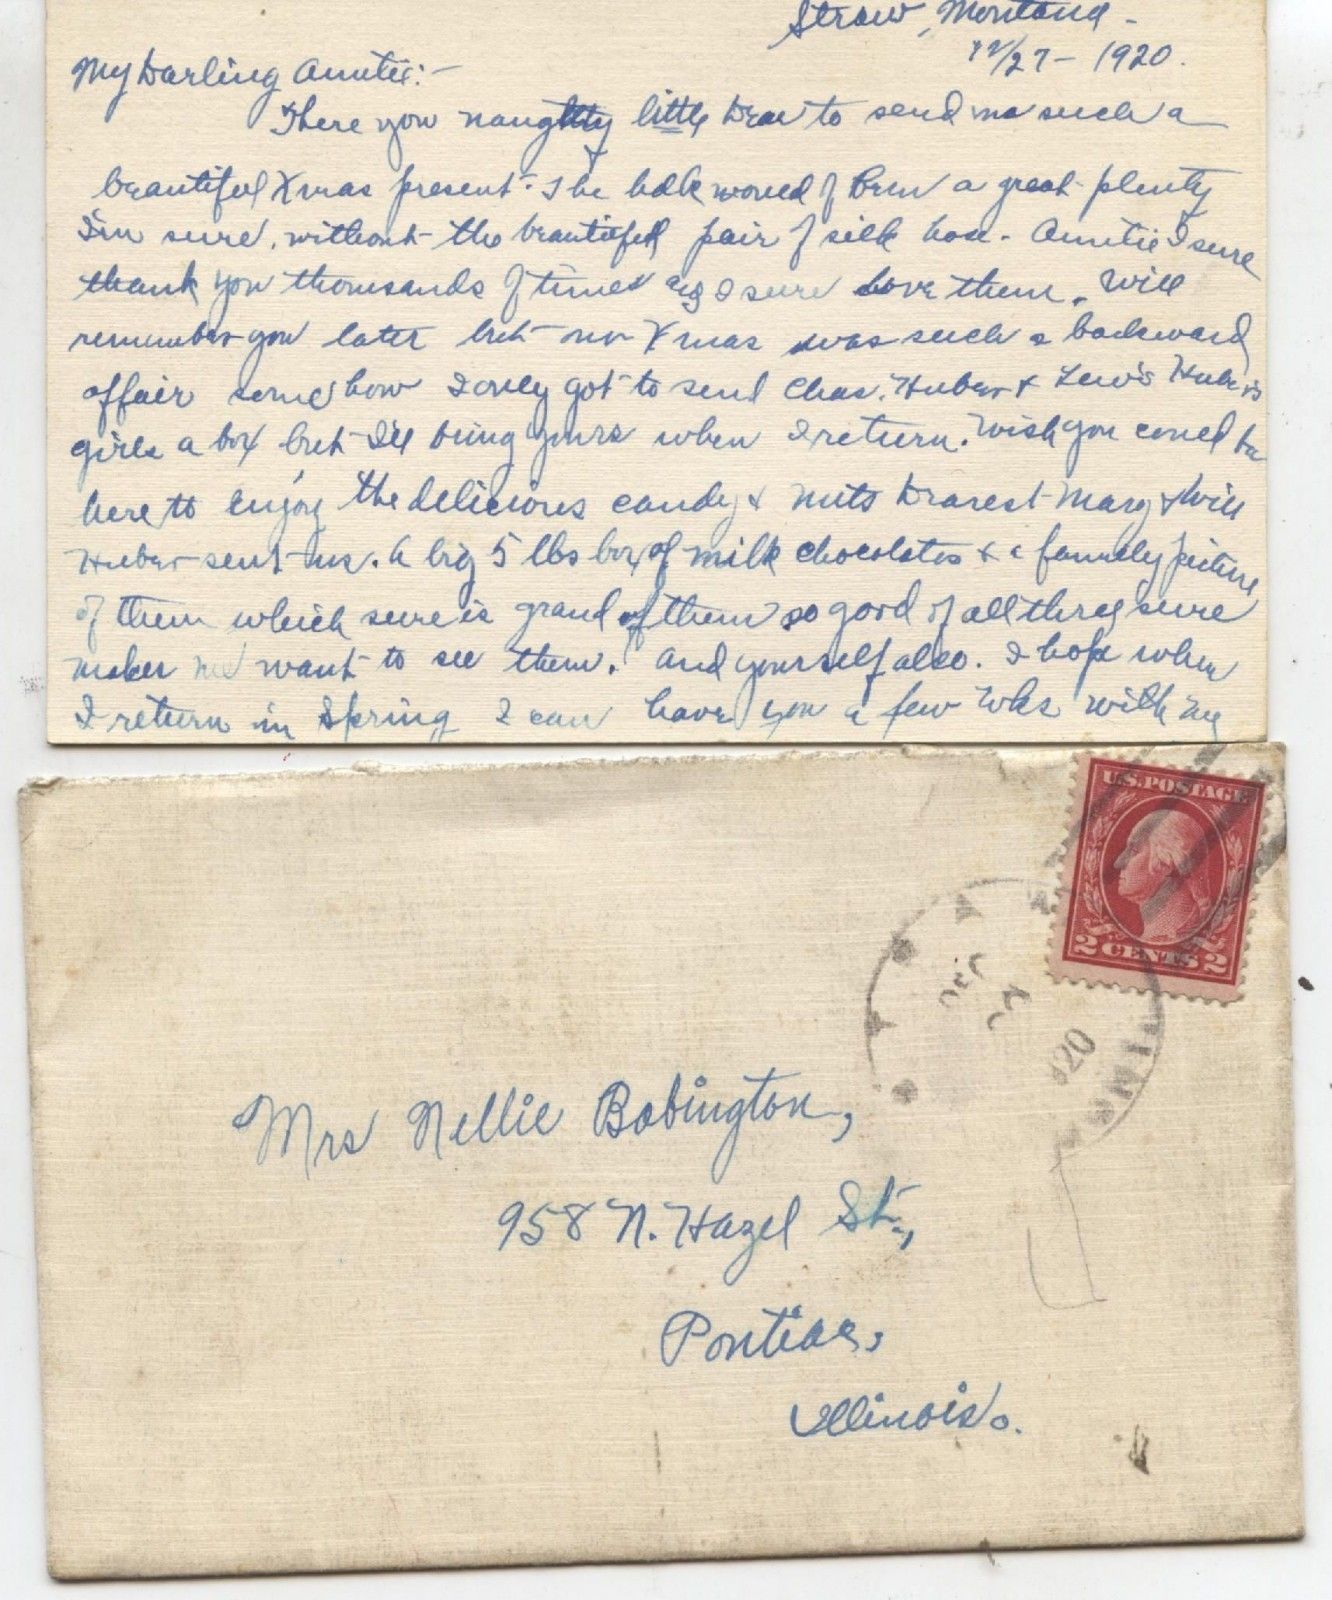 Straw, Montana -
12/27 - 1920.
My Darling Auntie:-
There you naughty little dear to send me such a
beautiful Xmas present. The hdk would of been a great plenty
I'm sure, without the beautiful pair of silk hose. Auntie I sure
thank you thousands of times as I sure love them. Will
remember you later but our Xmas was such a backward
affair some how I only got to send Chas. Huber & Lewis Huber's
girls a box but I'll bring yours when I return. Wish you could be
here to enjoy the delicious candy & nuts dearest Mary & Will
Huber sent us. A big 5 lbs box of milk chocolates & a family picture
of them which sure is grand of them so good of all three sure
makes me want to see them. And yourself also. I hope when
I return in Spring I can have you a few wks with me
U.S. POSTAGE
2 CENTS 2
DEC
1920
Mrs Nellie Babington,
958 N. Hazel St.,
Pontiac,
Illinois.